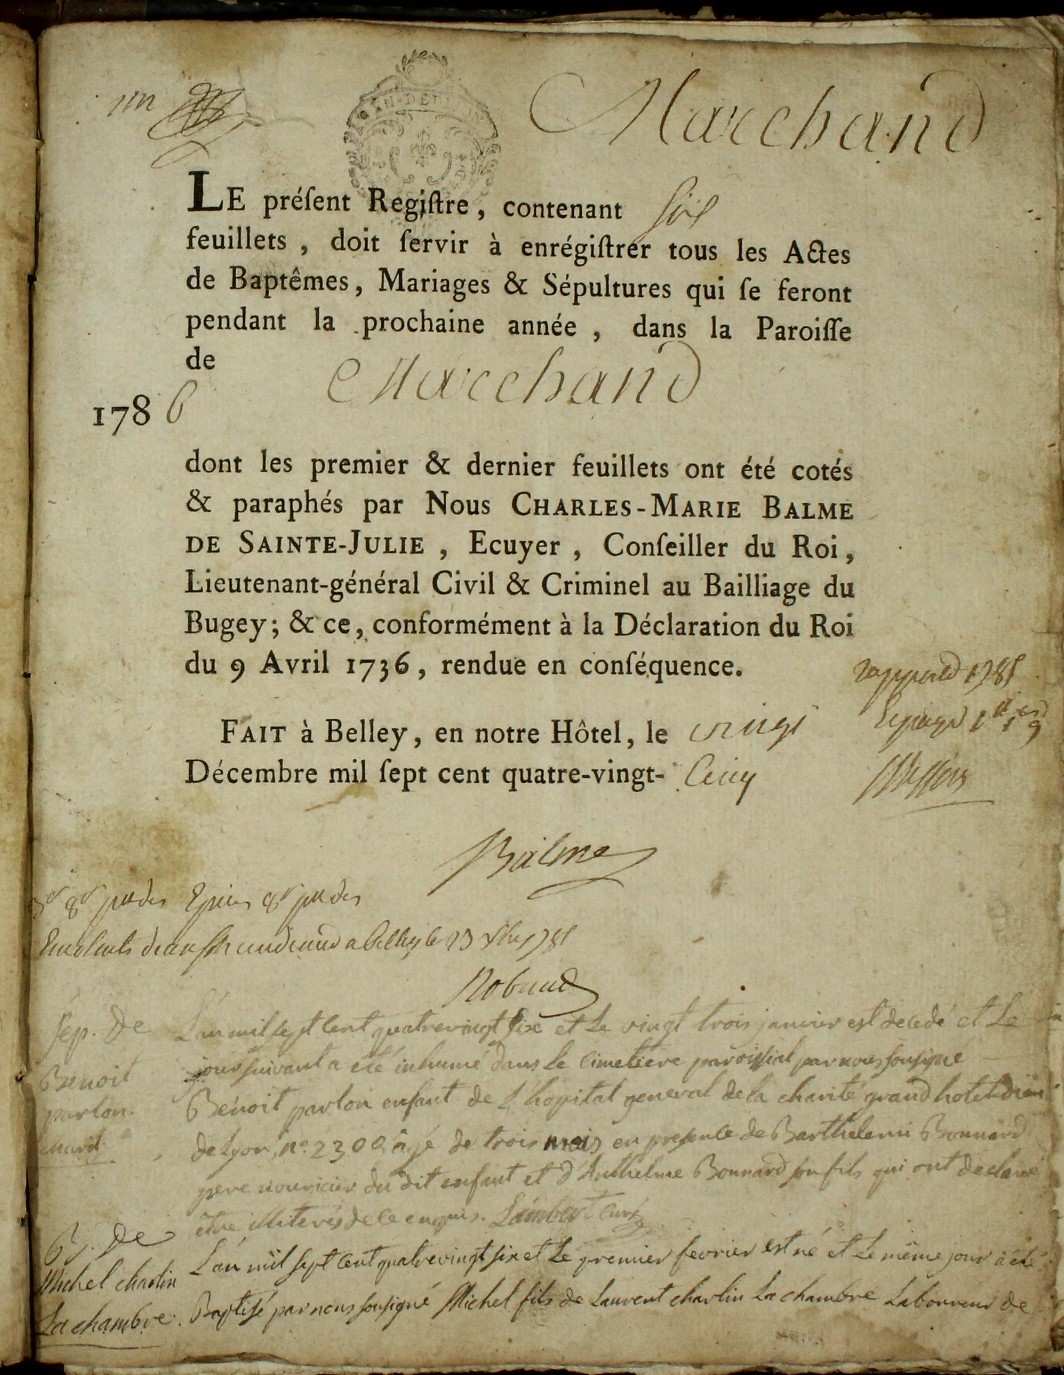 Marchand
LE préſent Regiſtre, contenant Six
feuillets, doit ſervir à enrégiſtrer tous les Actes
de Baptêmes, Mariages & Sépultures qui ſe feront
pendant la prochaine année, dans la Paroiſſe
de Marchand
1786
dont les premier & dernier feuillets ont été cotés
& paraphés par Nous CHARLES-MARIE BALME
DE SAINTE-JULIE, Ecuyer, Conſeiller du Roi,
Lieutenant-général Civil & Criminel au Bailliage du
Bugey; & ce, conformément à la Déclaration du Roi
du 9 Avril 1736, rendue en conſéquence.
FAIT à Belley, en notre Hôtel, le vingt
Décembre mil ſept cent quatre-vingt- Cinq
Balme
Robaud
Sép. De
Benoit
parlon
L'an mil sept Cent quatrevingt six et Le vingt trois janvier est decedé et Le
jour suivant a été inhumé dans le Cimetiere paroissial par nous soussigné
Benoit parlon enfant de L'hôpital general de la charité grand hotel Dieu
de Lyon, n° 2300 âgé de trois mois en presence de Barthelemi Bonnard
pere nouricier du dit enfant et d'Anthelme Bonnard son fils qui ont declaré
être illiterés de ce enquis. Lambert Curé
B. De
Michel charlin
La chambre.
L'an mil sept Cent quatrevingt six et Le premier fevrier est né et Le même jour a été
Baptisé par nous soussigné Michel fils de Laurent charlin La chambre Laboureur de